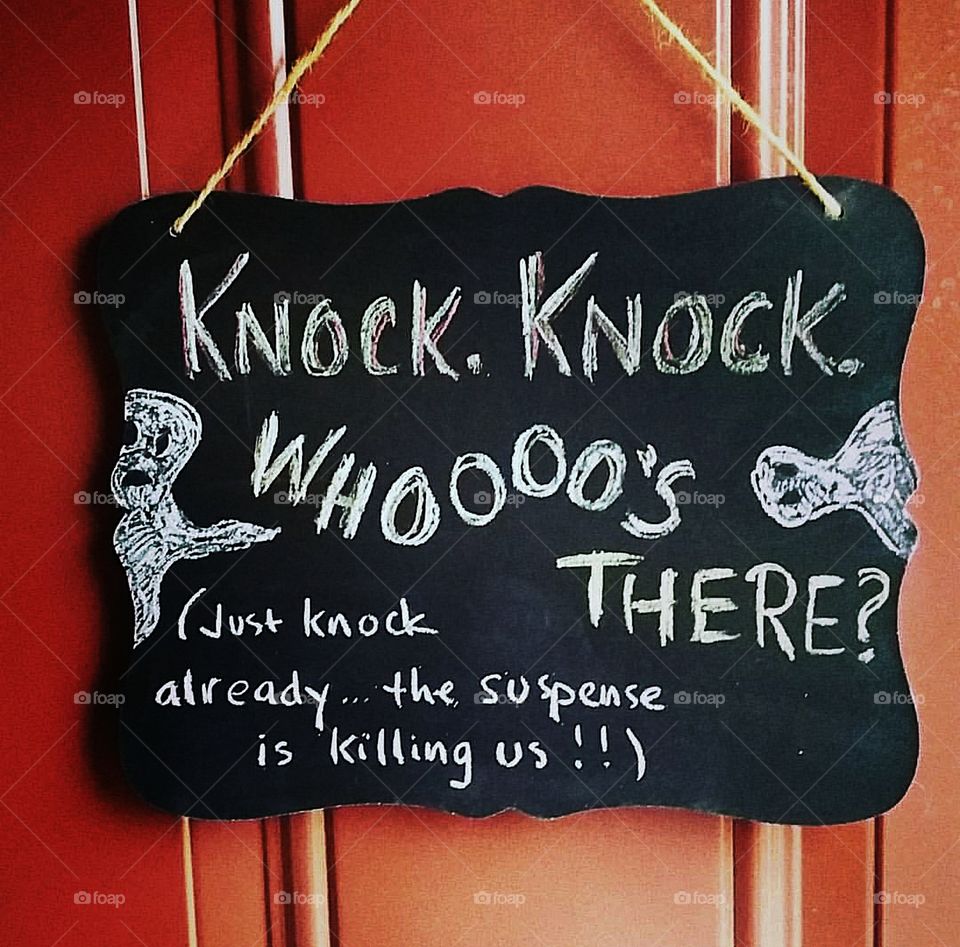 KNOCK. KNOCK.
WHOOOO'S
THERE?
(Just knock
already... the suspense
is killing us!!)
foap